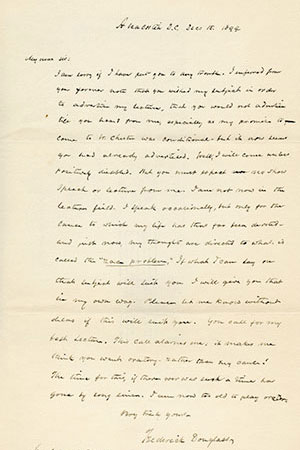 Anacostia D.C. Dec 18. 1888
My dear Sir:
I am sorry if I have put you to any trouble. I inferred from
your former note that you wished my subject in order
to advertise my lecture, that you would not advertise
till you heard from me, especially as my promise to
come to W. Chester was conditional - but it now seems
you had already advertised. Well, I will come unless
positively disabled. But you must expect no
speech or lecture from me. I am not now in the
lecture field. I speak occasionally, but only for the
cause to which my life has thus far been devoted -
and just now my thoughts are directed to what is
called the "race problem." If what I can say on
that subject will suit you I will give you that
in my own way. Please let me know without
delay if this will suit you. You call for my
best lecture. This call alarms me, it makes me
think you want oratory - rather than my cause!
The time for this, if there ever was such a time has
gone by long since. I am now too old to play orator.
Very truly yours
Frederick Douglass